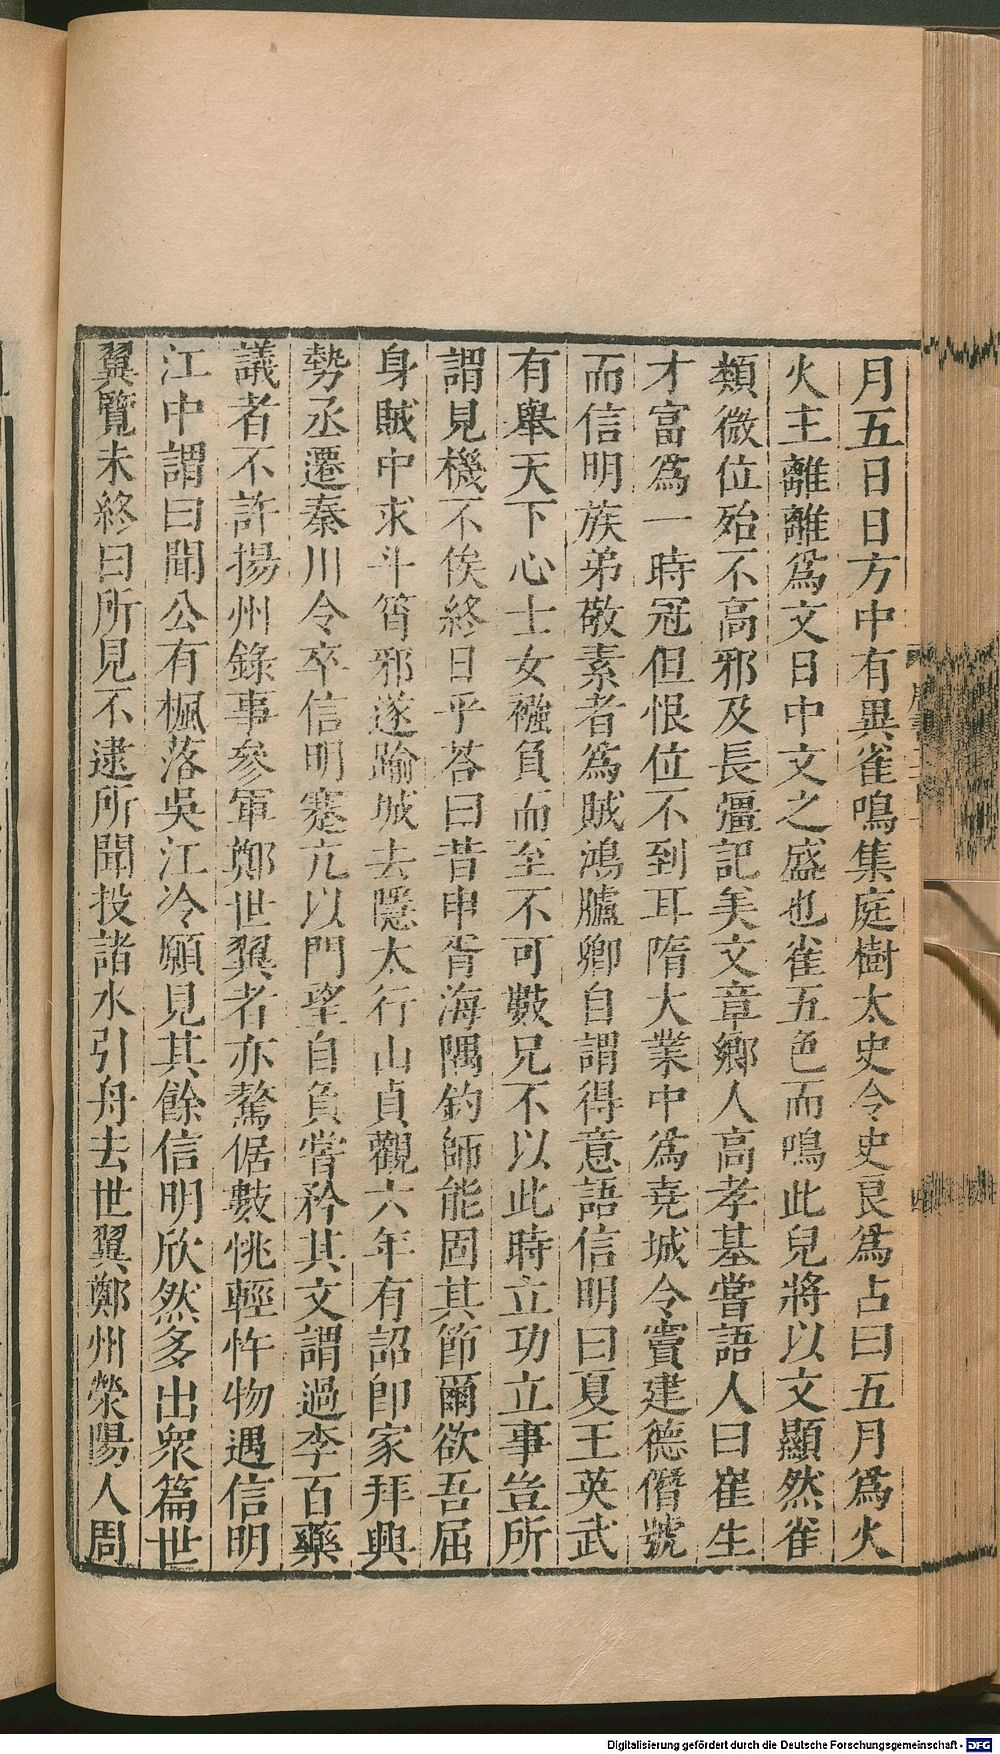 月五日日方中有異雀鳴集庭樹太史令史良爲占曰五月爲火
火主離離爲文日中文之盛也雀五色而鳴此兒將以文顯然雀
類微位殆不高邪及長彊記美文章鄉人高孝基嘗語人曰崔生
才富爲一時冠但恨位不到耳隋大業中爲堯城令竇建德僭號
而信明族弟敬素者爲賊鴻臚卿自謂得意語信明曰夏王英武
有舉天下心士女襁負而至不可數兄不以此時立功立事豈所
謂見機不俟終日乎荅曰昔申胥海隅釣師能固其節爾欲吾屈
身賊中求斗筲邪遂踰城去隱太行山貞觀六年有詔卽家拜興
勢丞遷秦川令卒信明蹇亢以門望自負嘗矜其文謂過李百藥
議者不許揚州錄事參軍鄭世翼者亦驁倨數恌輕忤物遇信明
江中謂曰聞公有楓落吳江冷願見其餘信明欣然多出衆篇世
翼覽未終曰所見不逮所聞投諸水引舟去世翼鄭州滎陽人周
Digitalisierung gefördert durch die Deutsche Forschungsgemeinschaft - DFG